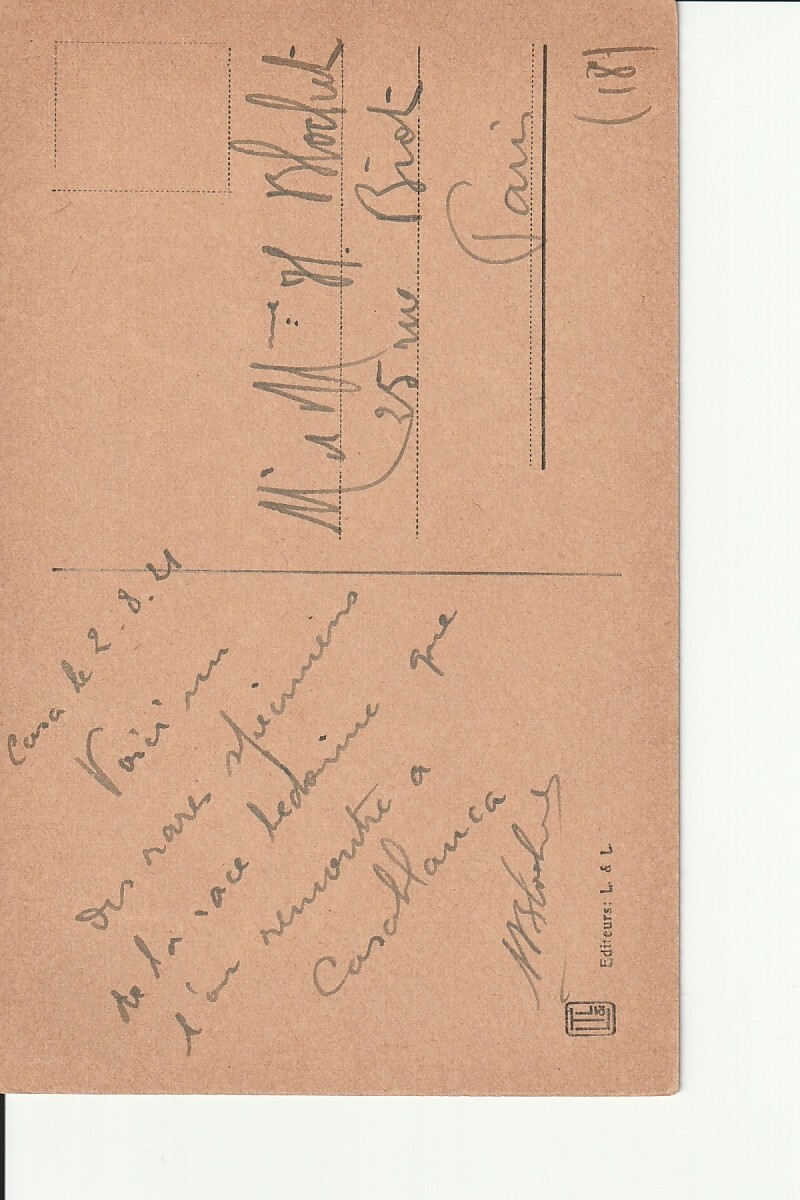 Casa le 2.8.21
Voici un
des rares spécimens
de la race bedouine que
l'on remontre a
Casablanca
Blochet
Editeurs: L. & L.
M. & Mme H. Blochet
25 rue Biot
Paris
(18)